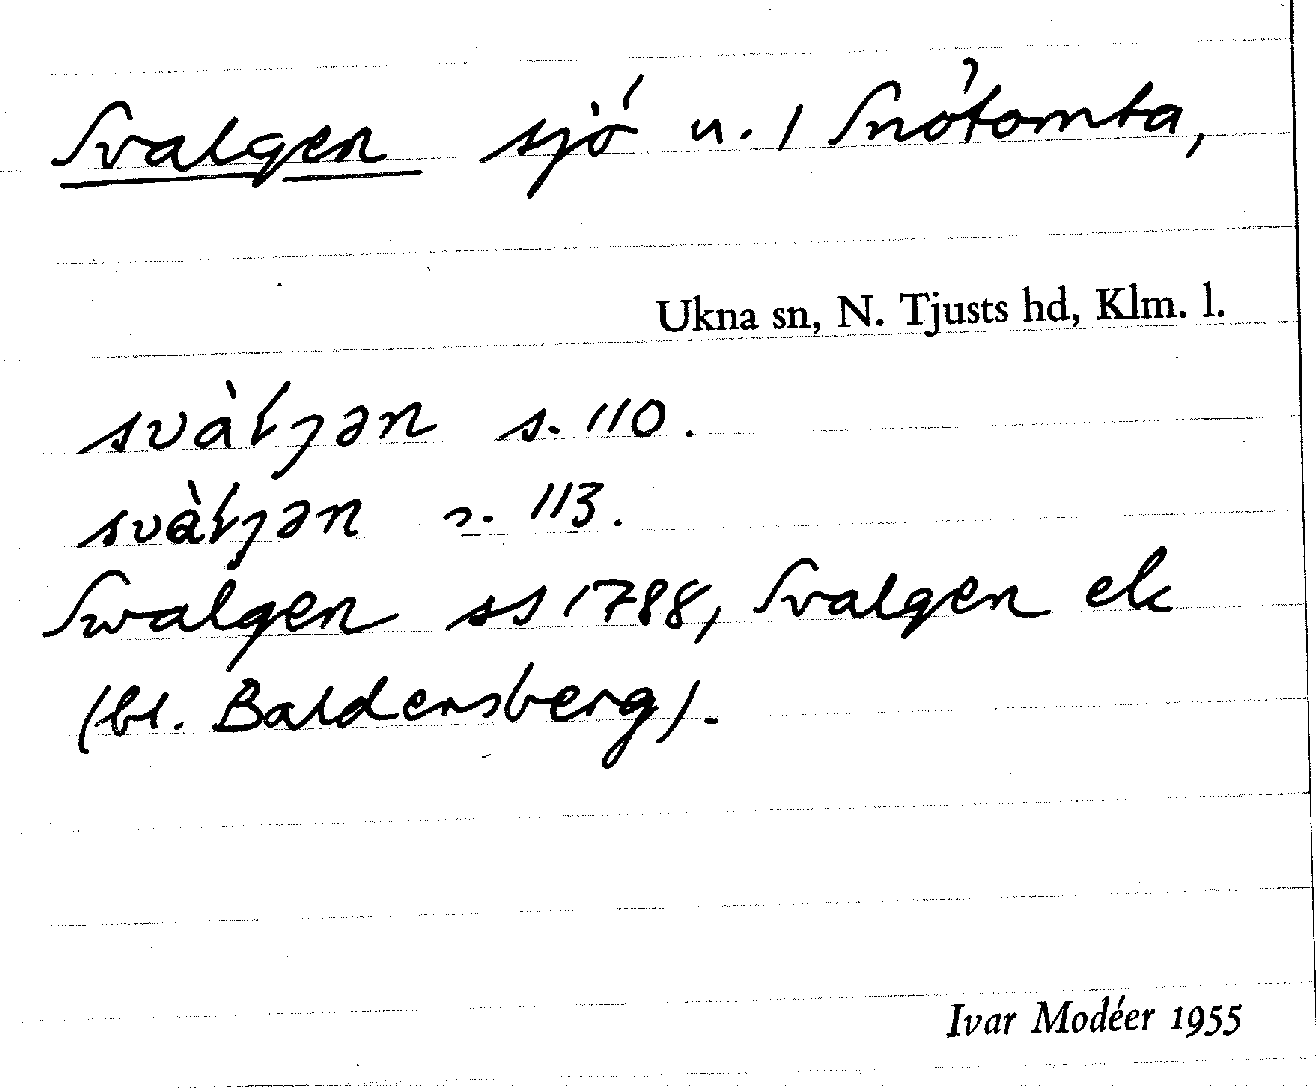 Svalgen sjö n. / Snötomta,
Ukna sn, N. Tjusts hd, Klm. l.
svàƚjən s. 110.
svàƚjən s. 113.
Swalgen ss 1788, Svalgen ek
(bl. Baldersberg).
Ivar Modéer 1955